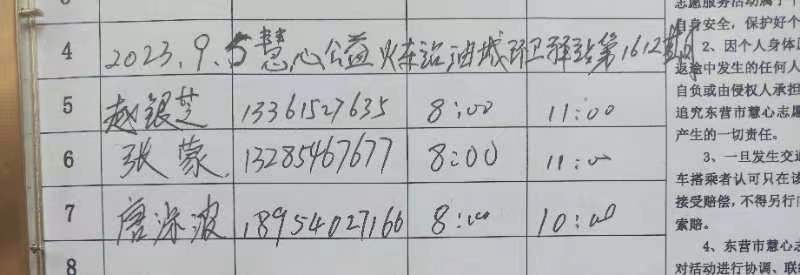 4 2023.9.5慧心公益火车站油城环卫驿站第1612期
5 赵银芝 13361527635 8:00 11:00
6 张蒙 13285467677 8:00 11:00
7 唐 波 18954027166 8:00 10:00
8
志愿服务活动属于
自身安全，保护好个
2、因个人身体
返途中发生的任何人
自负或由侵权人承担
追究东营市慧心志愿
产生的一切责任。
3、一旦发生交通
车搭乘者认可只在该
接受赔偿，不得另行
索赔。
4、东营市慧心志
对活动进行协调、联